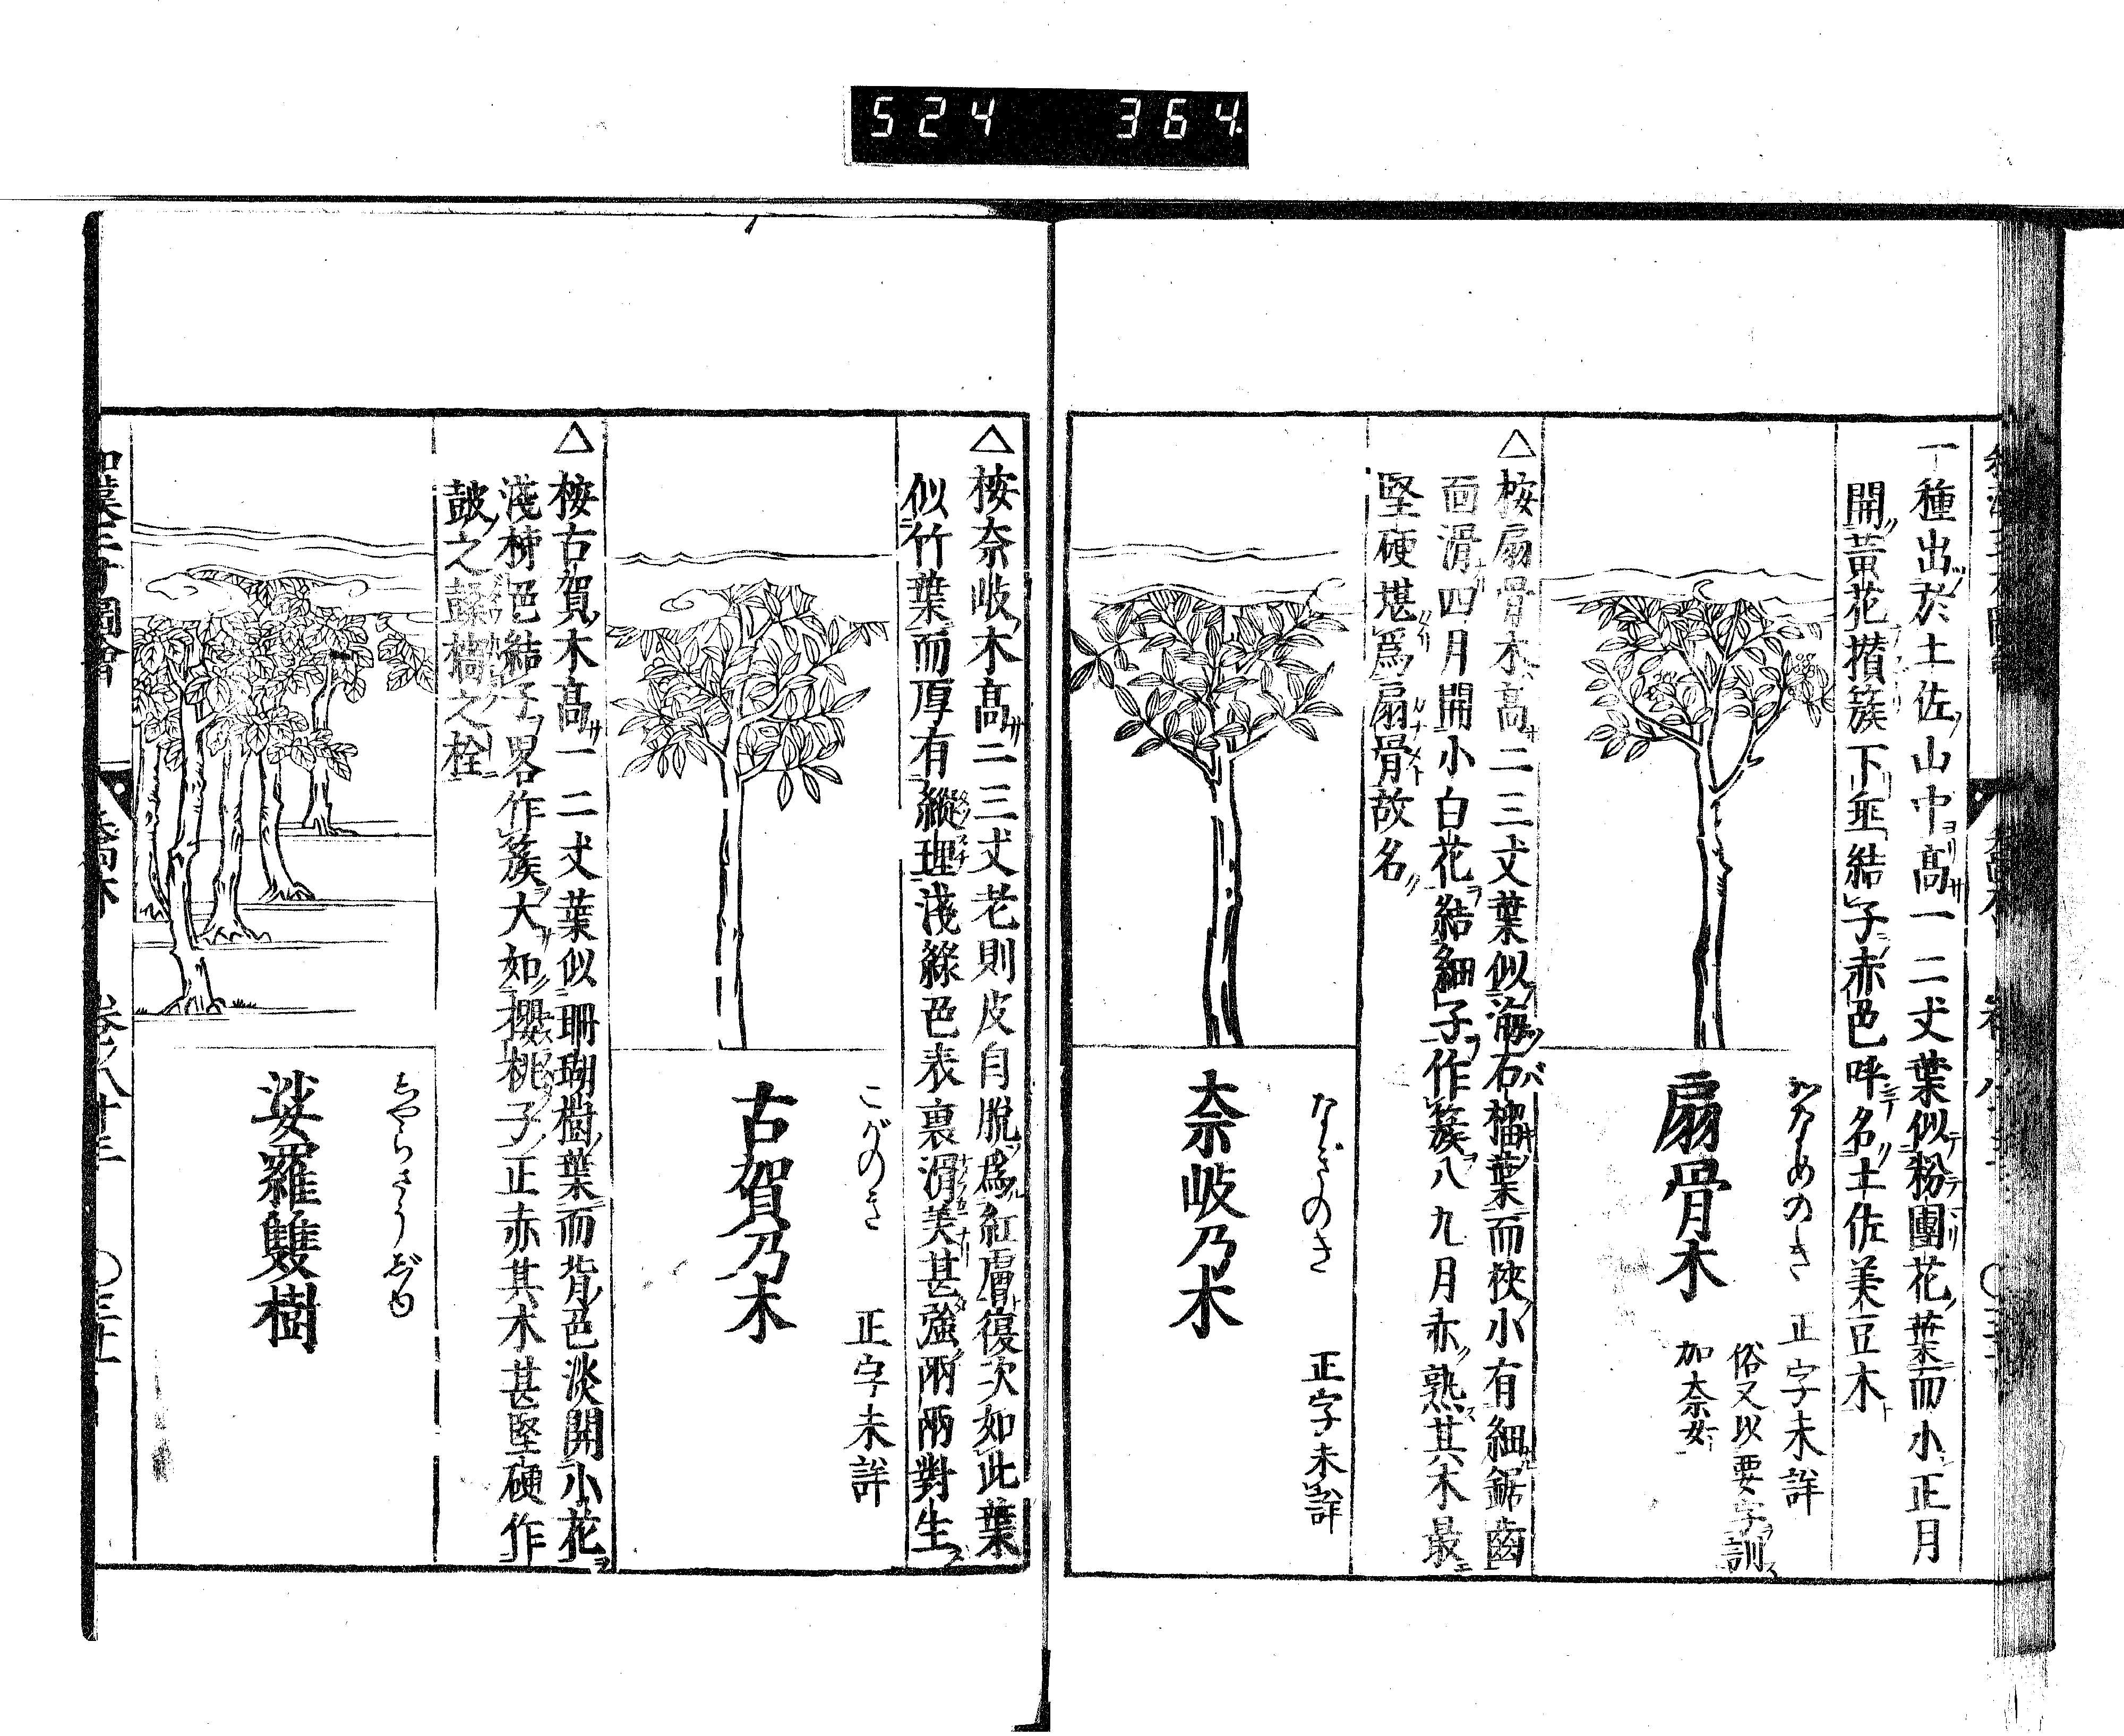 524 364
一種出於土佐山中高一二丈葉似粉團花葉而小正月
開黃花攅簇下垂結子赤色呼名土佐美豆木
かなめのき 正字未詳
俗又以要字訓
加奈女
扇骨木
△按扇骨木高二三丈葉似海石榴葉而狹小有細鋸齒
面滑四月開小白花結細子作簇八九月赤熟其木最
堅硬堪爲扇骨故名
なぎのき 正字未詳
奈岐乃木
△按奈岐木高二三丈老則皮自脫爲紅膚復次如此葉
似竹葉而厚有縱理淺綠色表裏滑美甚強兩兩對生
こがのき 正字未詳
古賀乃木
△按古賀木高一二丈葉似珊瑚樹葉而背色淡開小花
淺柹色結子畧作簇大如櫻桃子正赤其木甚堅硬作
皷之
之栓
しやらさうじゆ
娑羅雙樹
和漢三才圖會 喬木 卷之八十三